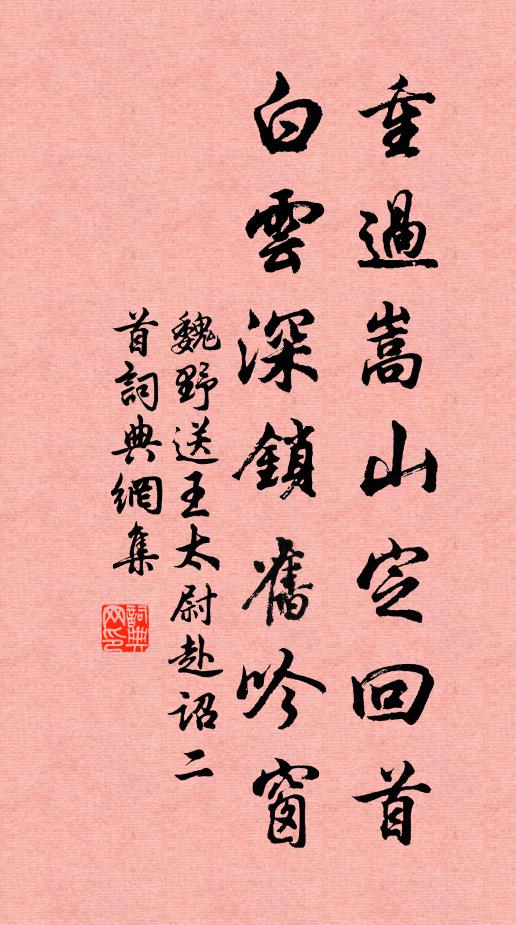 重過嵩山定回首
白雲深鎖舊吟窗
魏野送王太尉赴詔二
首詞典網集
詞典網印